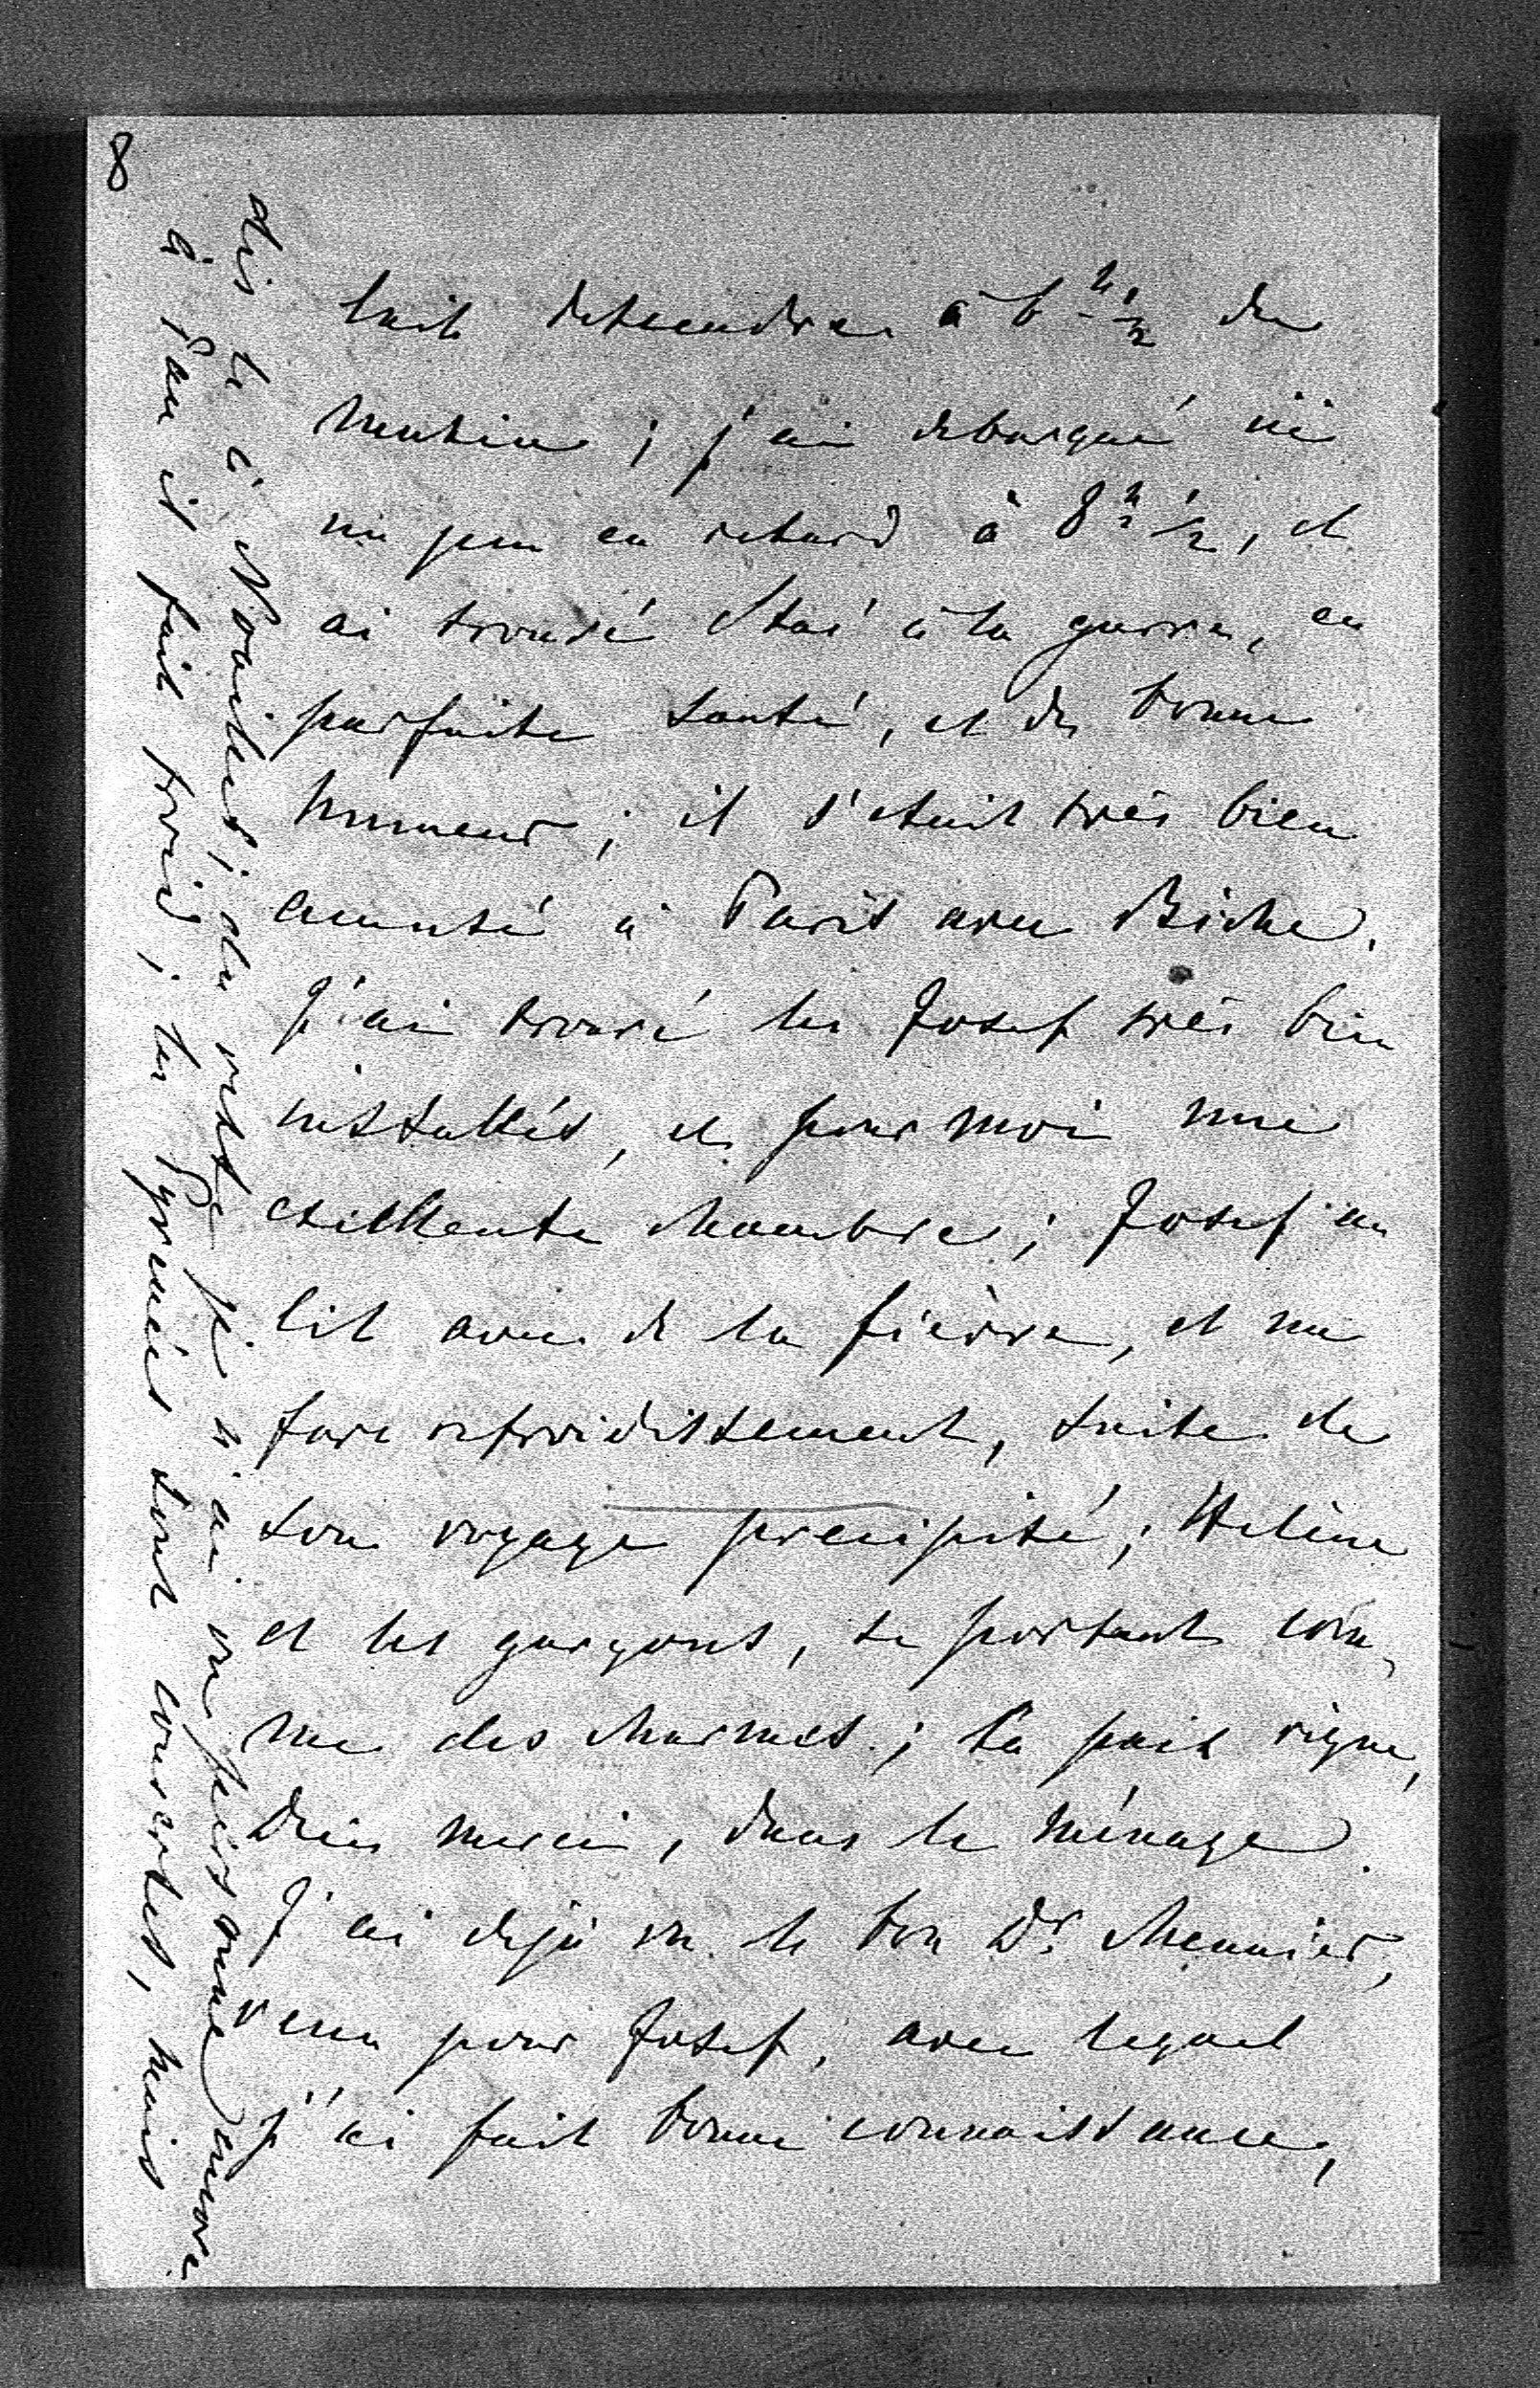 8
lait descendre à 6 h 1/2 du
matin ; j'ai debarqué ici
un peu en retard à 8 h 1/2, et
ai trouvé Stas à la garre, en
parfaite santé, et de bonne
humeur ; il s'etait très bien
amusé à Paris avec Biche.
J'ai trouvé les Josef très bien
installés, et pour moi une
exellente chambre ; Josef au
lit avec de la fièvre, et un
fort refroidissement, suite de
son voyage precipité ; Helène
et les garçons, se portant com-
me des charmes ; la paix règne,
Dieu merci, dans le ménage.
J'ai dejà vu le bon Dr. Meunier,
venu pour Josef, avec lequel
j'ai fait bonne connaissance,
dis le à Noailles ; du reste je n'ai vu personne encore.
à Pau il fait froid ; les Pyrenées sont couvertes, mais